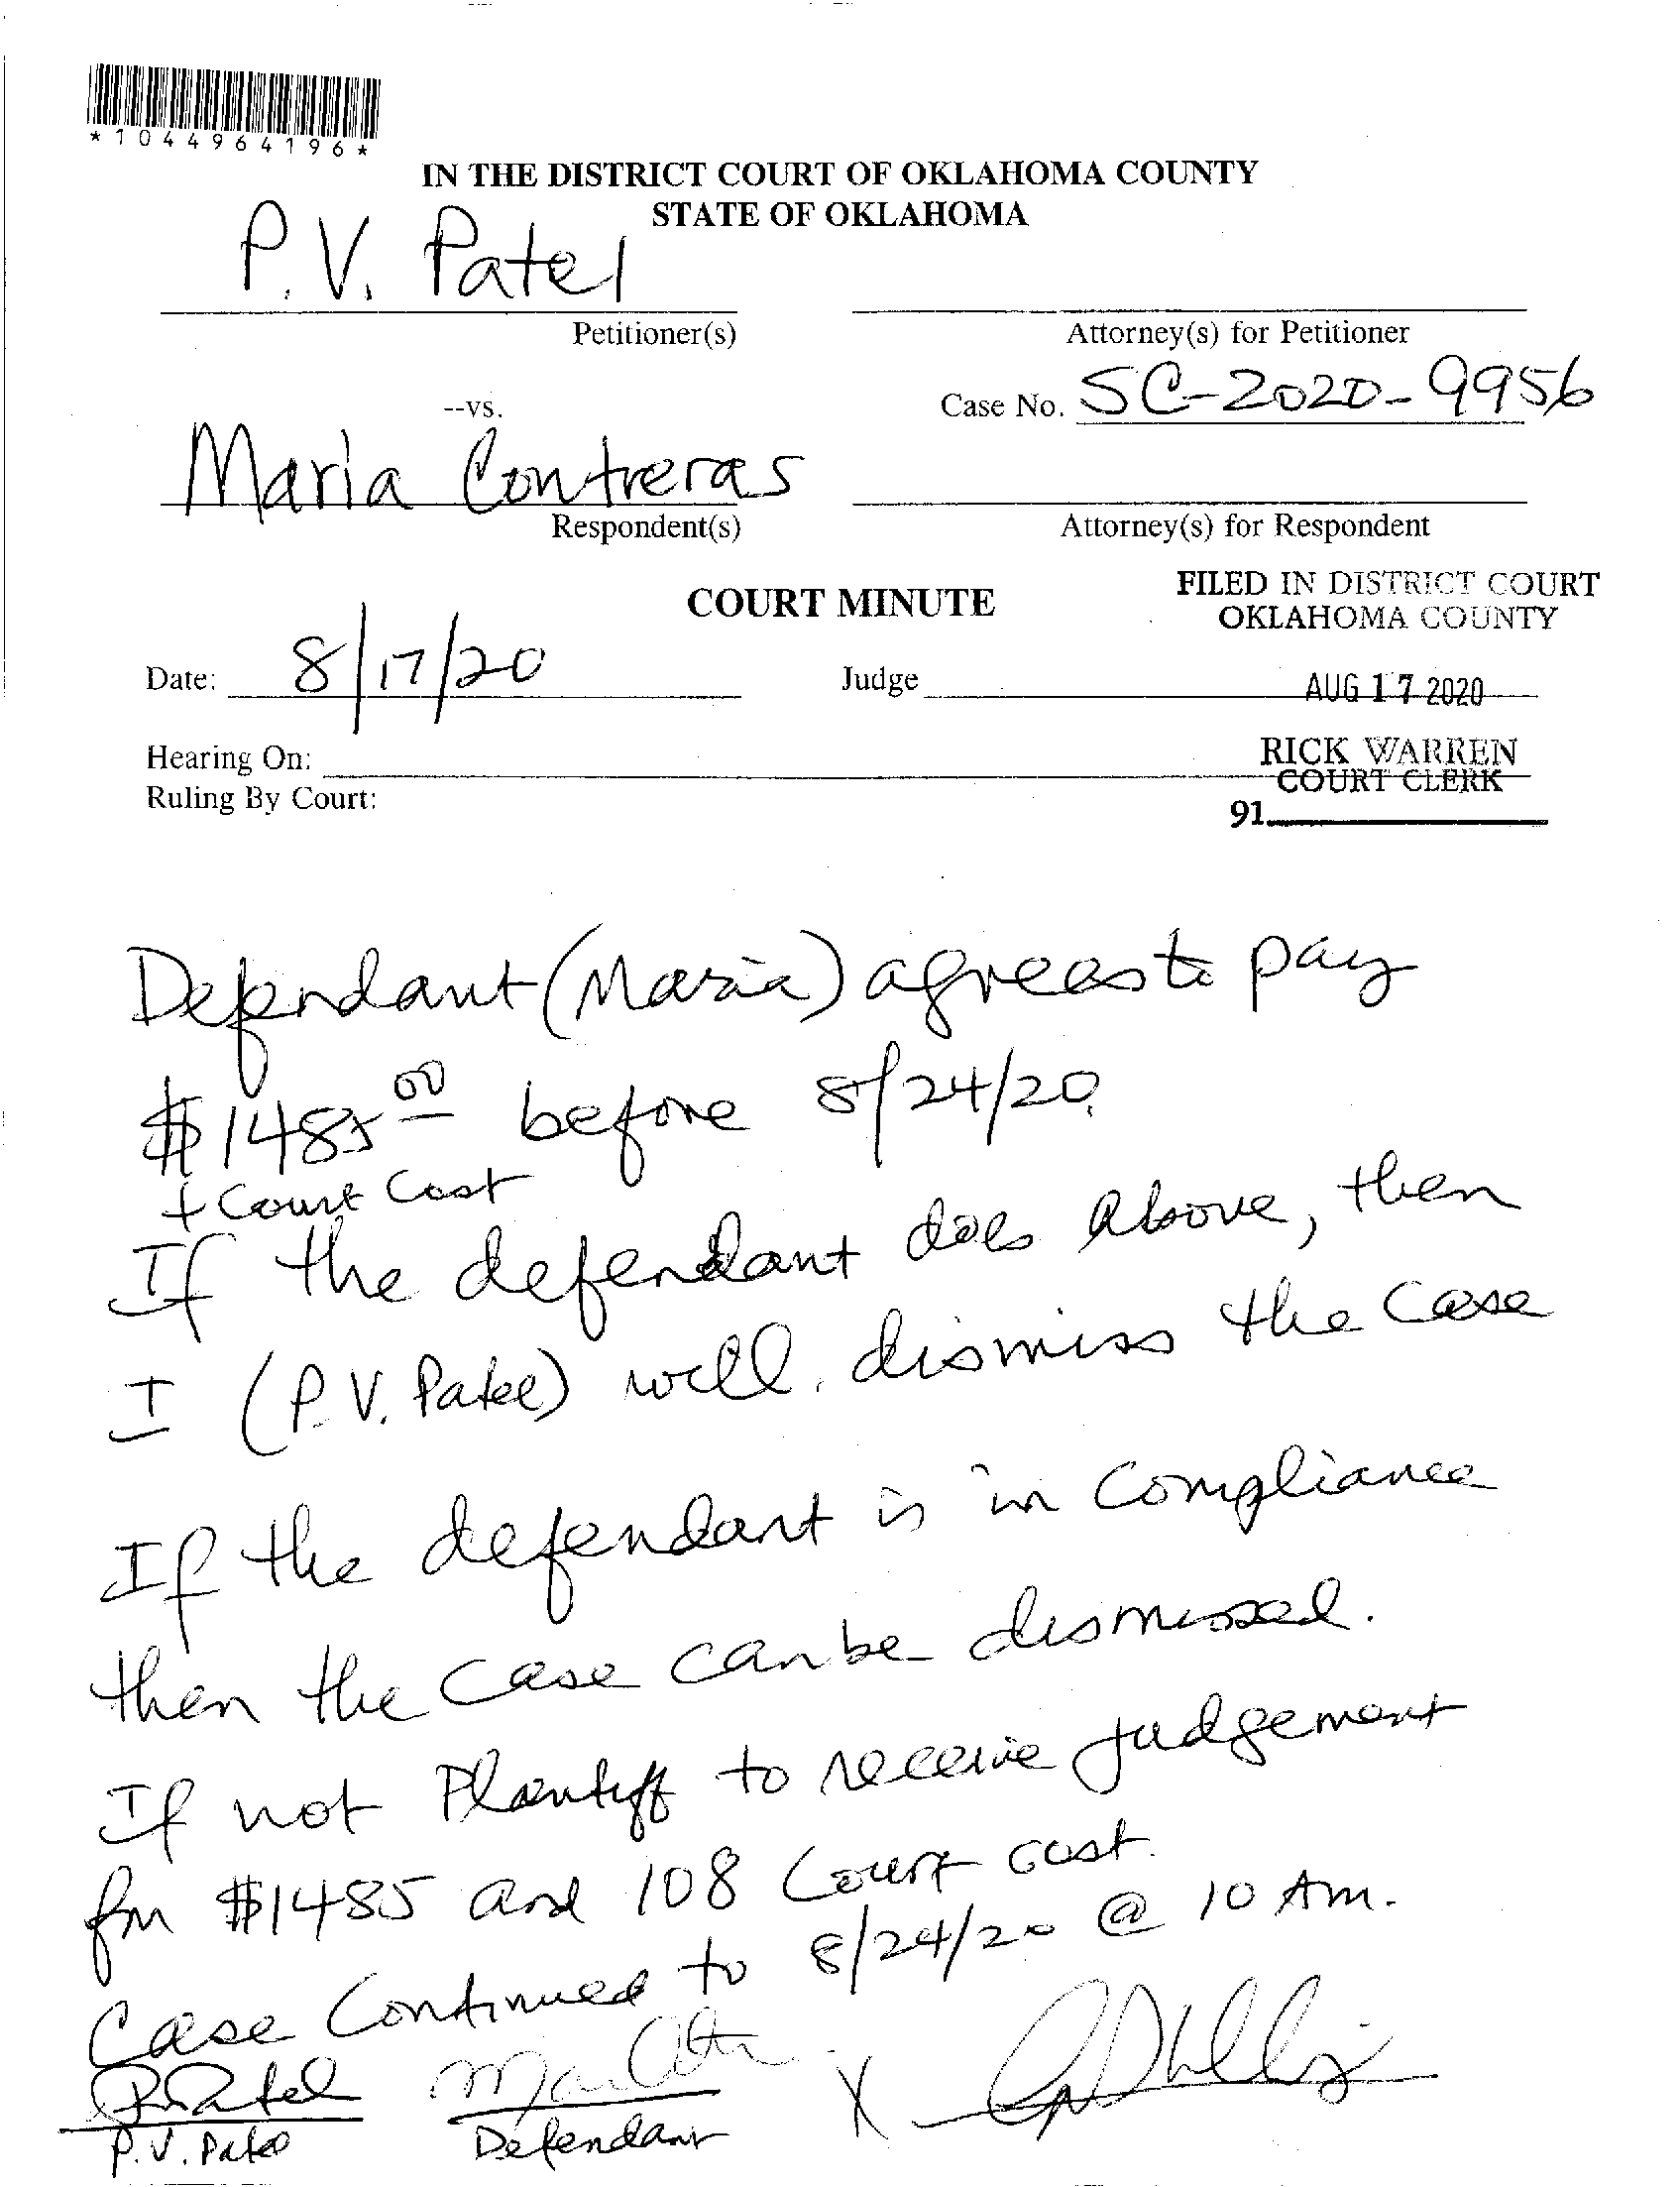 *1044964196*
IN THE DISTRICT COURT OF OKLAHOMA COUNTY
STATE OF OKLAHOMA
P.V. Patel
Petitioner(s)
Attorney(s) for Petitioner
--vs.
Case No. SC-2020-9956
Maria Contreras
Respondent(s)
Attorney(s) for Respondent
COURT MINUTE
FILED IN DISTRICT COURT
OKLAHOMA COUNTY
Date: 8/17/20
Judge
AUG 17 2020
Hearing On:
RICK WARREN
COURT CLERK
Ruling By Court:
91
Defendant (Maria) agrees to pay
$1485 00 before 8/24/20.
+ Court Cost
If the defendant does above, then
I (P.V. Patel) will dismiss the case
If the defendant is in compliance
then the case can be dismissed.
If not Plantiff to receive judgement
for $1485 and 108 Court cost.
Case Continued to 8/24/20 @ 10 Am.
P Patel
X
P.V. Patel
Defendant